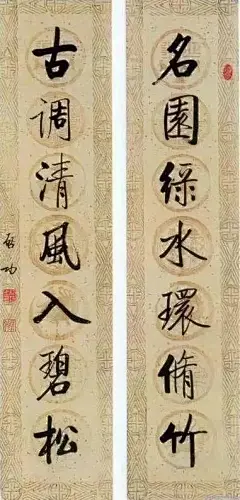 名园绿水環脩竹
古调清風入碧松
启功